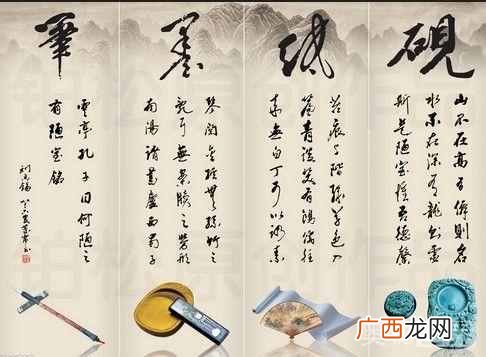 硯
山不在高有僊則名
水不在深有龍則靈
斯是陋室惟吾德馨
紙
苔痕上階綠草色入
簾青談笑有鴻儒往
來無白丁可以調素
墨
琴閱金經無絲竹之
亂耳無案牘之勞形
南陽諸葛廬西蜀子
筆
雲亭孔子曰何陋之
有陋室銘
劉禹錫
广西龙网